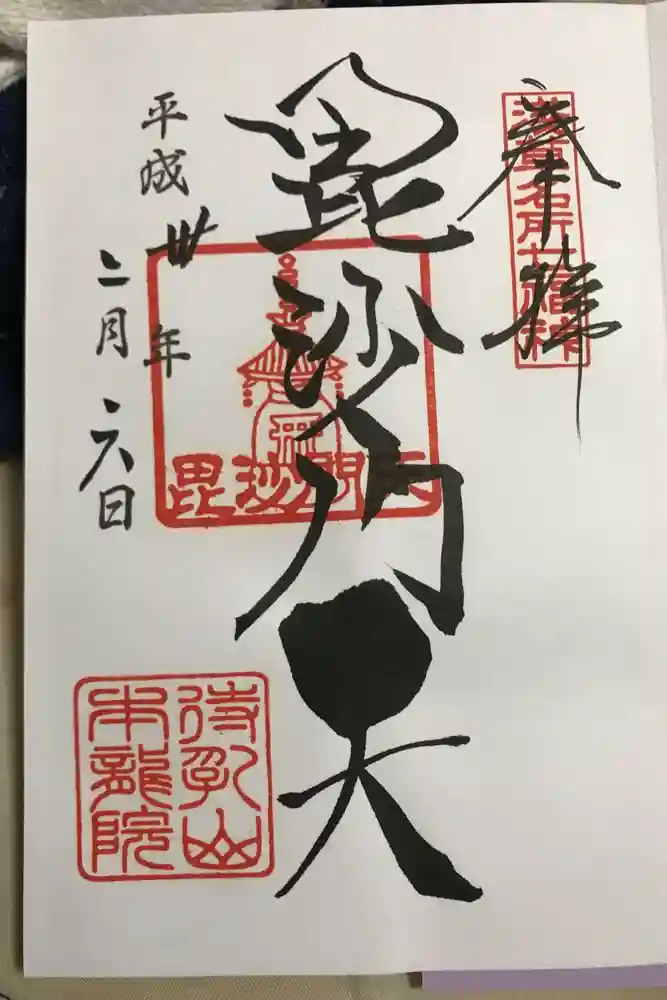 奉拝
浅草名所七福神
毘沙門天
毘沙門天
平成卅年
二月六日
待乳山
本龍院